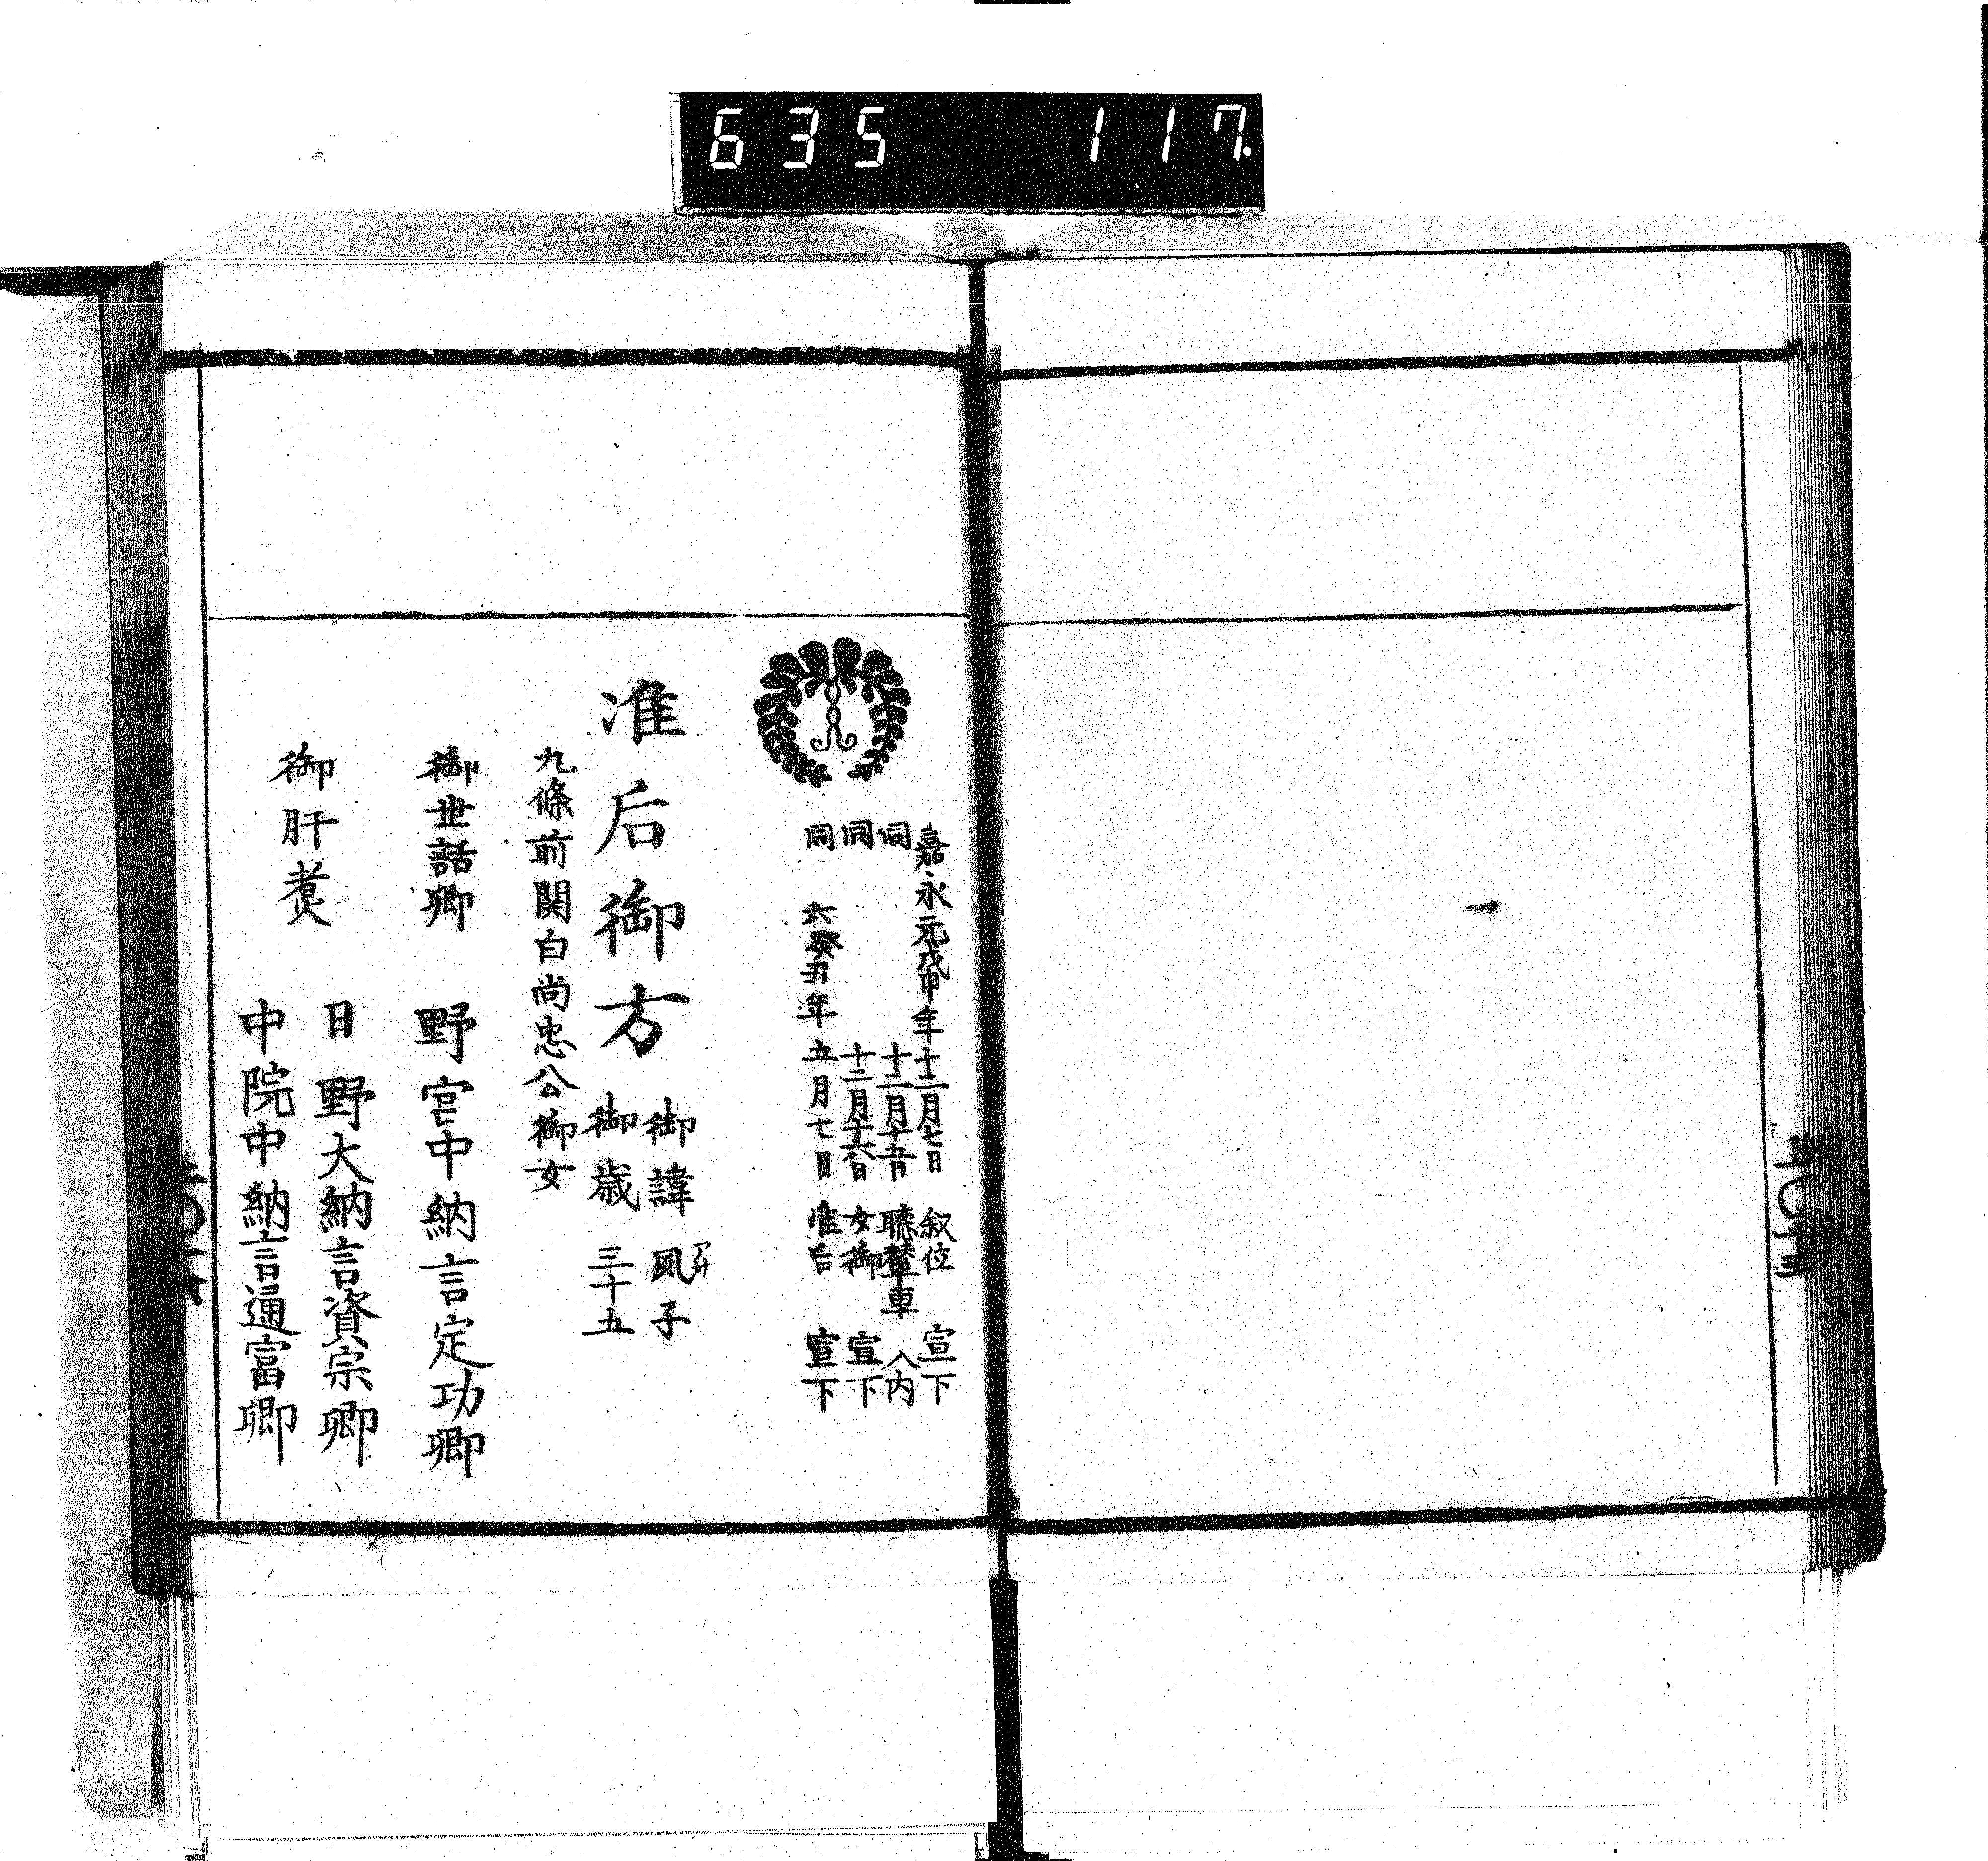 635 117.
嘉永元戊申年十二月七日 叙位 宣下
同 十二月十五日 聴輦車 入内
同 十二月十六日 女御 宣下
同 六癸丑年 五月七日 准后 宣下
准后御方
御諱 夙子
アサ
御歳 三十五
九條前関白尚忠公御女
御世話卿 野宮中納言定功卿
御肝煮 日野大納言資宗卿
中院中納言通富卿